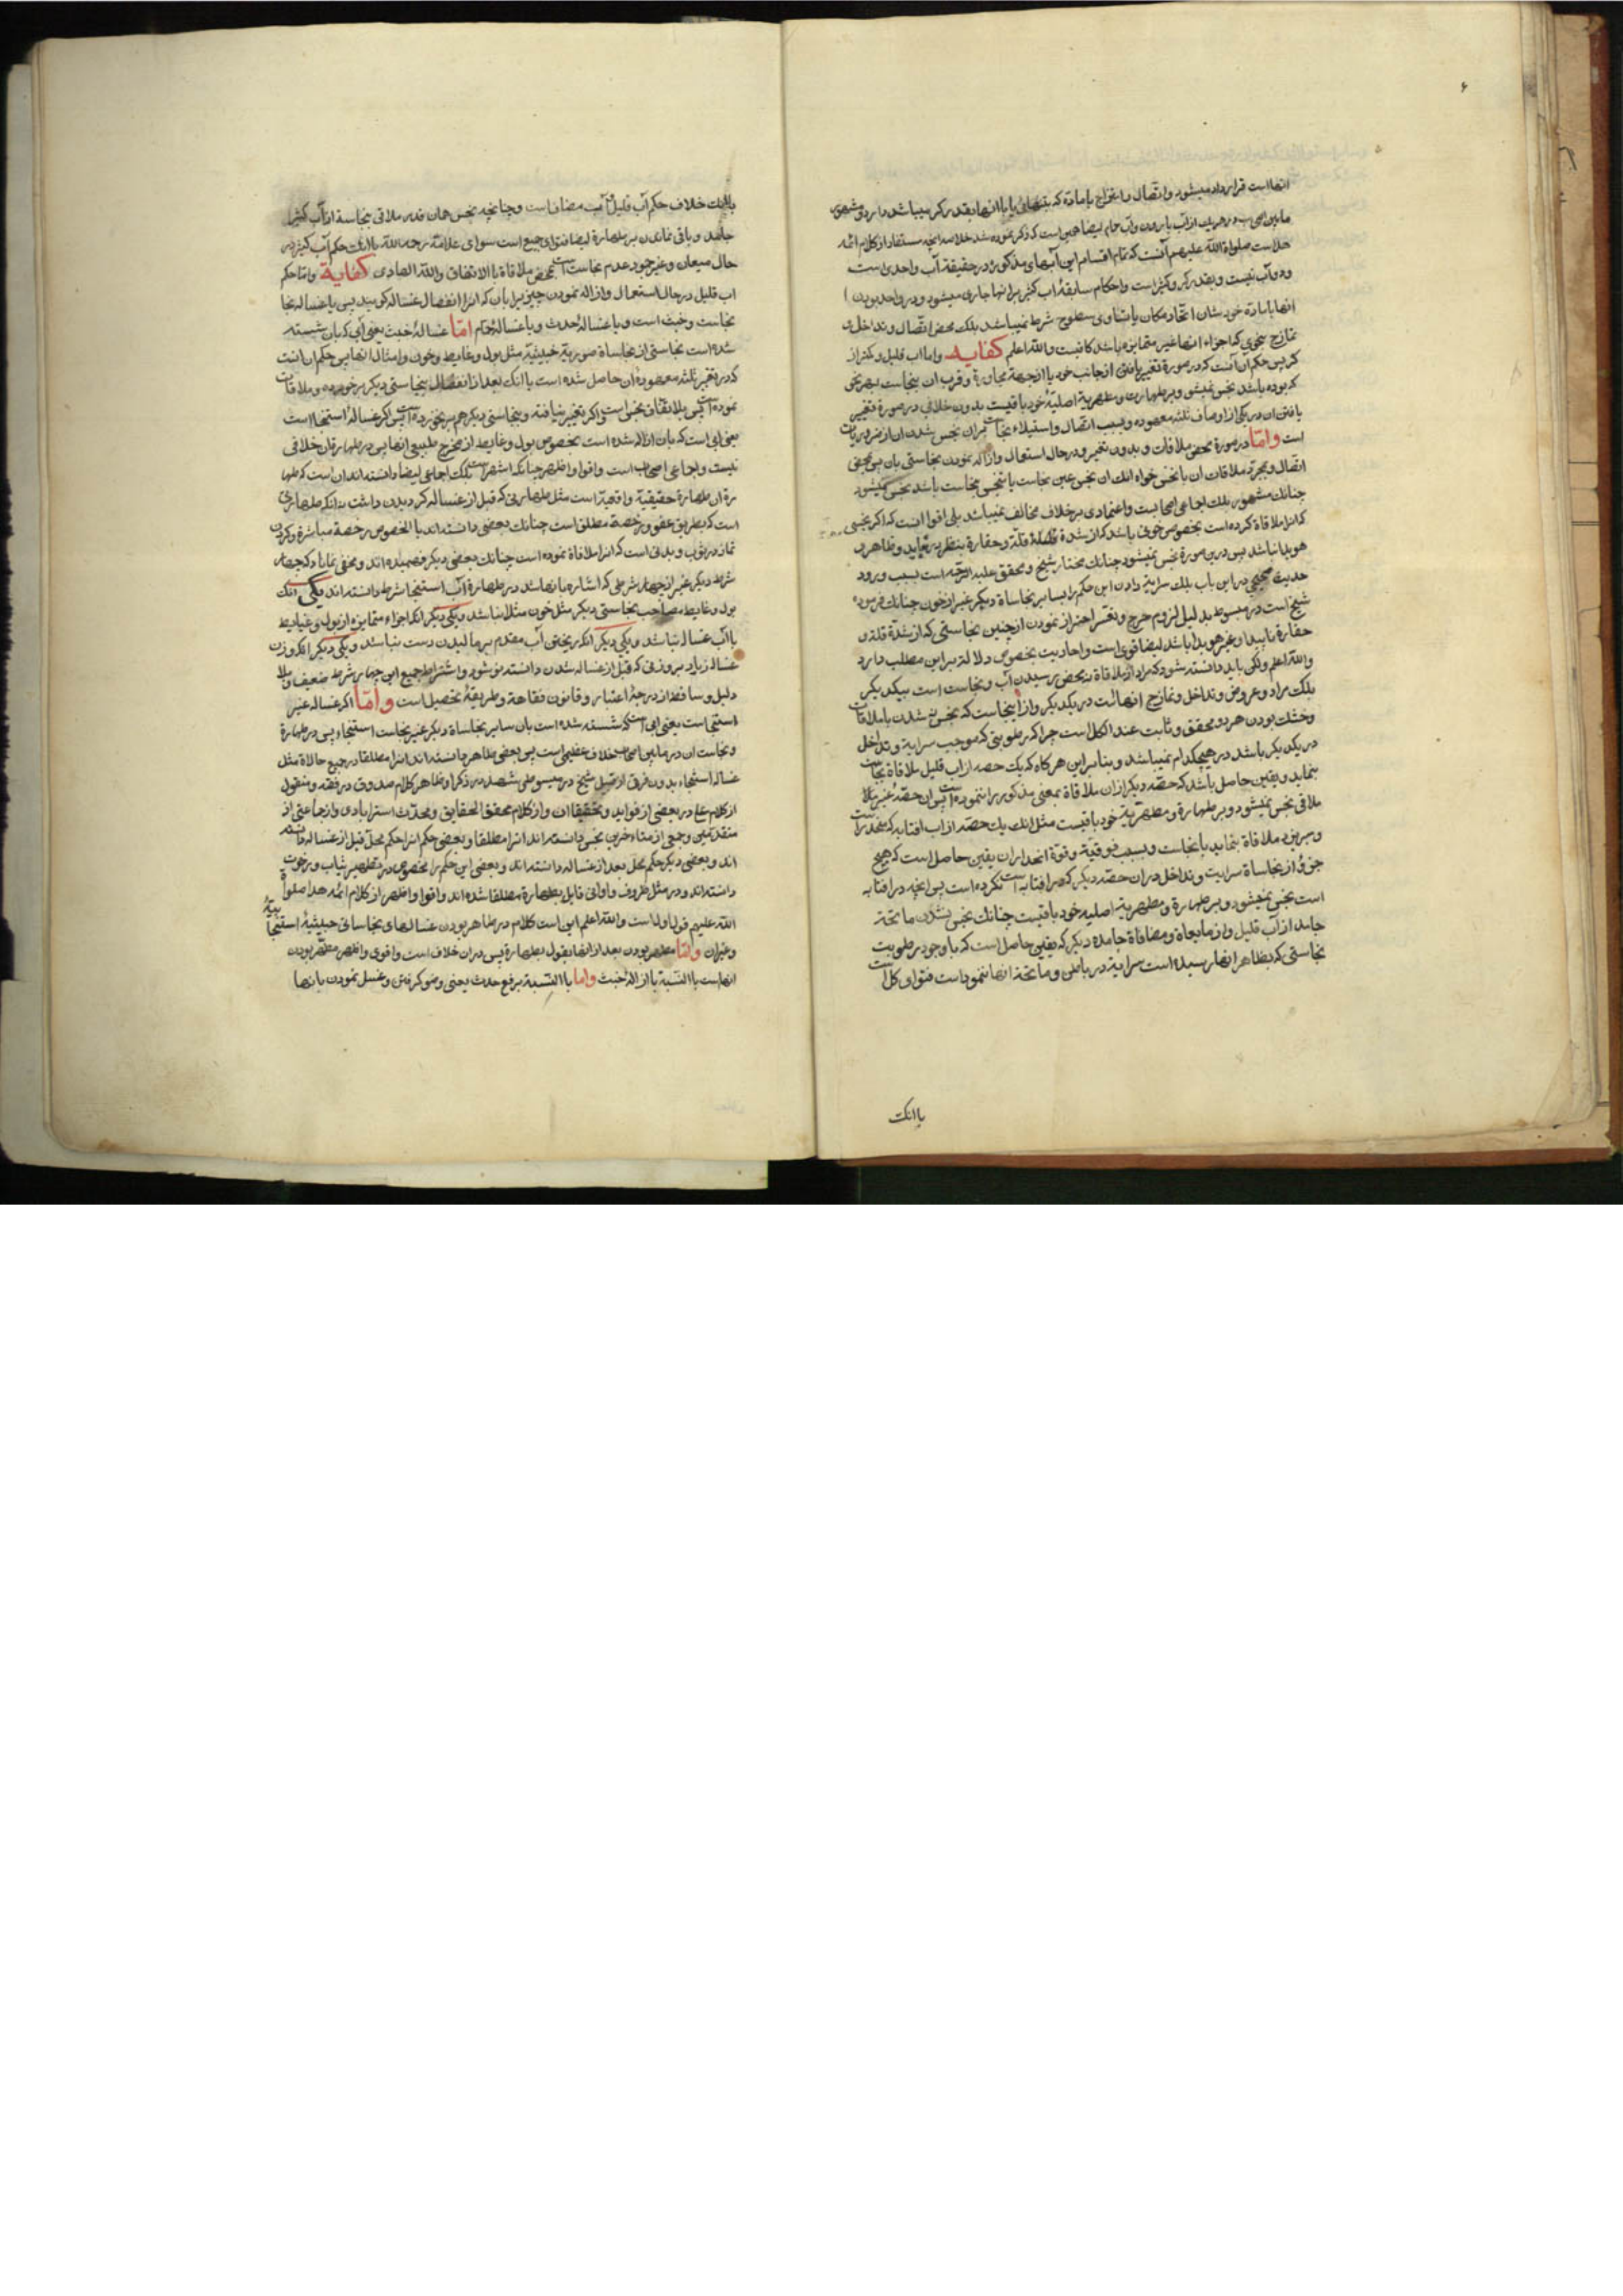 ۶
انهااست قرار داد میشود واتصال وامتزاج بامادّه که بتنهائی یا باانها بقدر کر میباشد دارد ومشهور
مابین در هریک ازآب باران وآب حام ایضا همین است که ذکر نموده شد خلاصه انچه مستفاد از کلام ائمه
هداست صلواة اللّه علیهم آنست که تمام اقسام این آبهای مذکوره در حقیقة آب واحدی است
ودوآب نیست وبقدر کر وکثیر است واحکام سابقهٔ اب کثیر برانها جاری میشود ودر واحد بودن
انهابامادّه خودشان اتّحاد مکان یا تساوی سطوح شرط نمیباشد بلکه محض اتّصال وتداخل و
تمازج بنحوی که اجزاء انها غیر متمایزه باشد کافیست واللّه اعلم کفایــه واما اب قلیل وکمتر از
کر پس حکم آن آنست که در صورة تغییر یافتن از جانب خود یا از جهة مجاورة وقرب ان بنجاست بهر نحو
که بوده باشد نجس نمیشود وبر طهارت ومطهریة اصلیهٔ خود باقیست بدون خلافی در صورة تغییر
یافتن ان در یکی از اوصاف ثلثه معهوده وبسبب اتصال واستیلاء نجاست بران نجس شدن ان از ضروریات
است وامّا در صورة محض ملاقات وبدون تغییر ودر حال استعمال وازاله نمودن نجاستی بان پس بمحض
اتّصال وبمجرّد ملاقات ان با نجس خواه انکه ان نجس عین نجاست یا متنجس بنجاست باشد نجس میشود
چنانکه مشهور بلکه اجماعی اصحابست واعتمادی بر خلاف مخالف نمیباشد بلی اقوا انست که اکر نجسی
که انرا ملاقاة کرده است بخصوص خونی باشد که از شدة قلّة وحقارة بنظر در نیاید وظاهر و
هویدا نباشد پس درین صورة نجس نمیشود چنانکه مختار شیخ ومحقق علیه الرّحمه است بسبب ورود
حدیث صحیحی در این باب بلکه سرایة دادن این حکم را بسایر نجاساة دیکر غیر از خون چنانکه فرموده
شیخ است در مبسوط بدلیل لزوم حرج وتعسّر احتراز نمودن از چنین نجاستی که از شدّة قلة و
حقارة ناپیدا وغیر هویدا باشد ایضا قوی است واحادیث بخصوص دلالة بر این مطلب دارد
واللّه اعلم ولکن باید دانسته شود که مراد از ملاقاة نه محض رسیدن آب ونجاست است بیکدیکر
بلکه مراد وعروض وتداخل وتمازج انهاست در یکدیکر واز اینجاست که نجس نشدن با ملاقات
وخشک بودن هر دو محقق وثابت عند الکل است چرا که رطوبتی که موجب سرایة وتداخل
در یکدیکر باشد در هیچکدام نمیباشد وبنابر این هر کاه که یک حصه از اب قلیل ملاقاة نجاست
بنماید ویقین حاصل باشد که حصّه دیکر ازان ملاقاة بمعنی مذکور را ننموده است پس ان حصّهٔ غیر ملا
ملاقی نجس نمیشود وبر طهارة ومطهّریّة خود باقیست مثل انکه یک حصّه از اب افتابه که منحدر است
ومیریزد ملاقاة بنماید با نجاست وبسبب فوقیّة وقوّة انحدار ان یقین حاصل است که هیچ
جزؤ از نجاساة سرایت وتداخل در ان حصّه دیکر که در افتابه است نکرده است پس انچه در افتابه
است نجس نمیشود وبر طهارة ومطهریة اصلیه خود باقیست چنانکه نجس نشدن ماتحة
جامد از آب قلیل واز مایعاة ومضافاة جامده دیکر که یقین حاصل است که باوجود رطوبت
نجاستی که بظاهر انها رسیده است سرایة در باطن وماتحة انها ننموداست فتوای کل است
باانکه
باانکه خلاف حکم آب قلیل وآب مضاف است وچنانچه نجس همان قدر ملاقی بنجاسة از آب کثیر
جامد وباقی ماندن بر طهارة ایضا فتوای جمیع است سوای علامّة رحمه اللّه باانکه حکم آب کثیر در
حال میعان وغیر جمود عدم نجاست است بمحض ملاقاة باالاتفاق واللّه الهادی کفایــة وامّا حکم
اب قلیل در حال استعمال وازاله نمودن چیزی را بان که انرا انفصال غساله کویند پس یا غساله نجا
نجاست وخبث است ویا غسالهٔ حدث ویا غسالهٔ حمام امّا غسالهٔ خبث یعنی آبی که بان شسته
شده است نجاستی از نجاساة صوریّه خبیثیّه مثل بول وغایط وخون وامثال انها پس حکم ان انست
که در تغیر ثلثه معهوده ان حاصل شده است یا انکه بعد از انفصال بنجاستی دیکر بر خورده وملاقات
نموده است پس باالاتّفاق نجس است واکر تغییر نیافته وبنجاستی دیکر هم بر نخورده است پس اکر غسالهٔ استنجا است
یعنی ابی است که بان ازاله شده است بخصوص بول وغایط از مخرج طبیعی انها پس در طهارة ان خلافی
نیست واجماعی اصحاب است واقوا واظهر چنانکه اشهر است بلکه اجماعی ایضا دانسته اند ان است که طها
رة ان طهارة حقیقیّة واقعیّه است مثل طهارتی که قبل از غساله کردیدن داشت نه انکه طهارتی
است که بطریق عفو ورخصة مطلق است چنانکه بعضی دانسته اند یا الخصوص رخصة مباشرة وکردن
نماز در ثوب وبدنی است که انرا ملاقاة نموده است چنانکه بعضی دیکر فهمیده اند ومخفی نماناد که چهار
شرط دیکر غیر از چهار شرطی که اشاره بانها شد در طهارة آب استنجا شرط دانسته اند یکی انکه
بول وغایط مصاحب نجاستی دیکر مثل خون مثلا نباشد ویکی دیکر انکه اجزاء متمایزه از بول وغایط
باآب غساله نباشد ویکی دیکر انکه ریختن آب مقدم بر مالیدن دست نباشد ویکی دیکر انکه وزن
غساله زیاد بر وزنی که قبل از غساله شدن دانسته نوشود واشتراط جمیع این چهار شرط ضعیف وبلا
دلیل وساقط از درجهٔ اعتبار وقانون فقاهة وطریقهٔ تحصیل است وامّا اکر غساله غیر
استنجا است یعنی ابی است که شسته شده است بان سایر نجاساة دیکر غیر نجاست استنجاء پس در طهارة
ونجاست ان در مابین اصحاب خلاف عظیمی است پس بعضی طاهر دانسته اند انرا مطلقا در جمیع حالاة مثل
غساله استنجاء بدون فرق از قبیل شیخ در مبسوط وشهید در ذکرا وظاهر کلام صدوق در فقه ومنقول
از کلام علم در بعضی از فواید وتحقیقات ان واز کلام محقق الحقایق ومحدّث استرابادی واز جماعتی از
متقدمین وجمعی از متاءخرین نجس دانسته اند انرا مطلقا وبعضی حکم انرا حکم محلّ قبل از غساله دانسته
اند وبعضی دیکر حکم محل بعد از غساله دانسته اند وبعضی این حکم را مخصوص در تطهیر ثیاب ورخوت
دانسته اند ودر مثل ظروف واوانی قایل بطهارة مطلقا شده اند واقوا واظهر از کلام ائمه هدا صلواة
اللّه علیهم قول اول است واللّه اعلم این است کلام در طاهر بودن غسالهای نجاساتی خبیثیهٔ استنجائیهٔ
وغیران وامّا مطهر بودن بعد از انها بقول بطهارة پس دران خلاف است واقوی واظهر مطهّر بودن
انهاست باالنّسبة باازالهٔ خبث واما باالنّسبة برفع حدث یعنی وضو کرفتن وغسل نمودن بانها